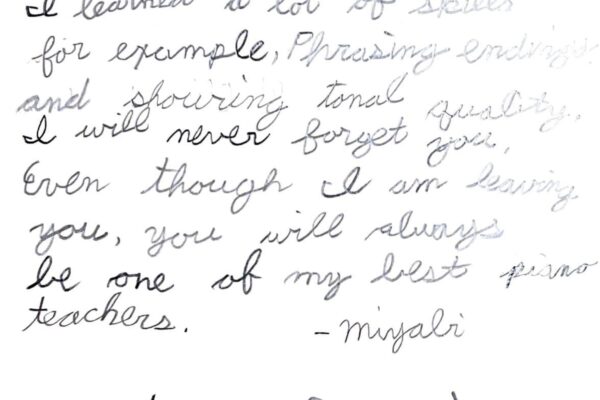 I learned a lot of skills
for example, Phrasing endings
and showring tonal quality.
I will never forget you,
Even though I am leaving
you, you will always
be one of my best piano
teachers. - Miyabi